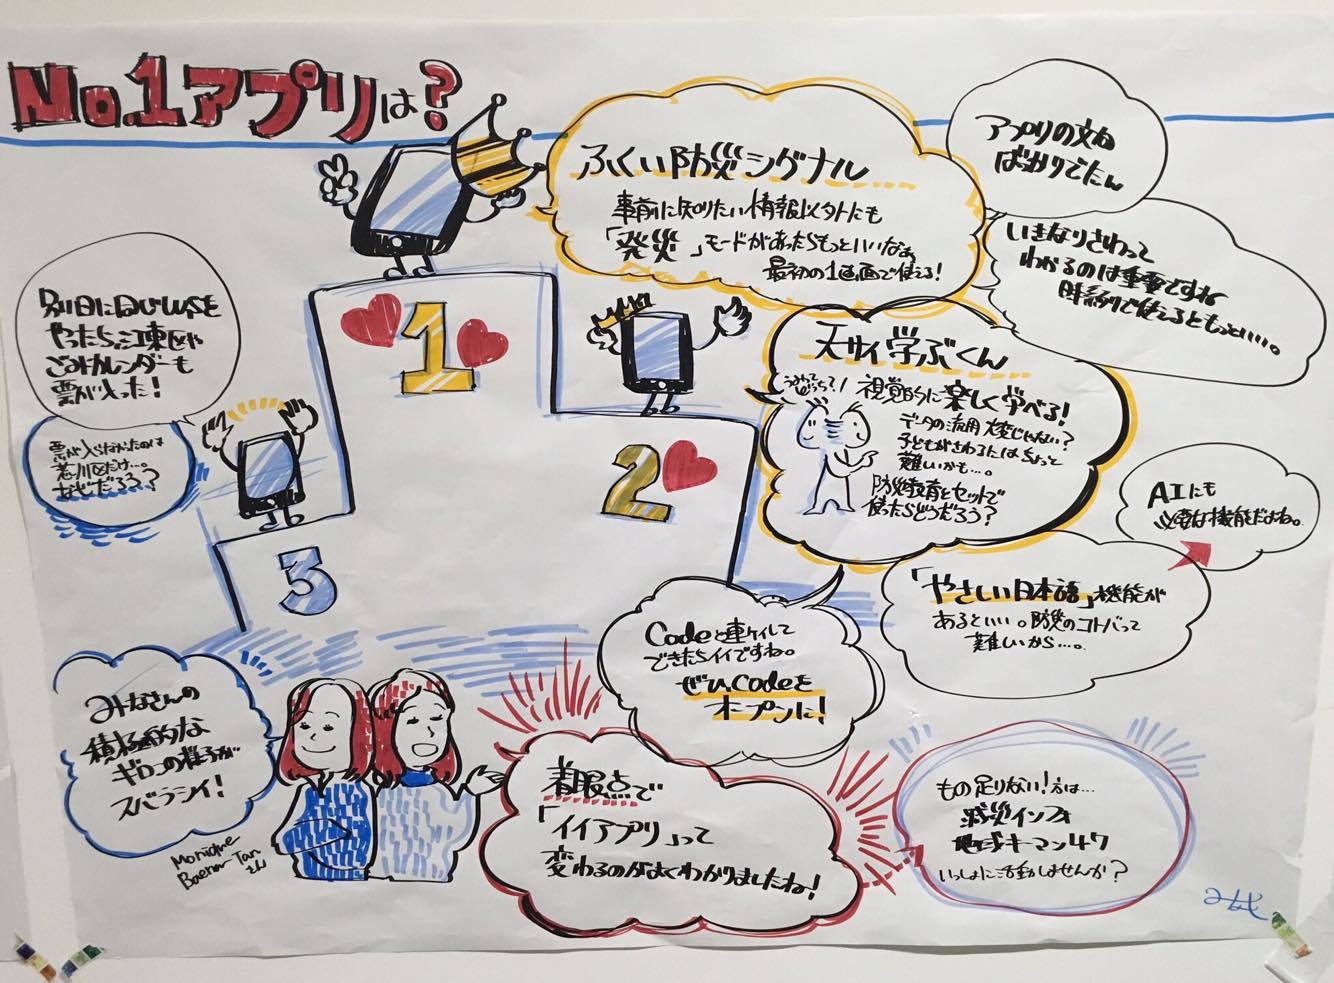 No.1アプリは?
ふくい防災シグナル
事前に知りたい情報以外にも
「発災」モードがあったらもっといいなぁ
最初の1画面で使える!
アプリの文ね
ばかりでたん
いきなりさわって
わかるのは重要ですね
時系列で使えるともっといい…。
別日に同じWSを
やったら江東区や
ごみカレンダーも
票が入った!
票が入らなかったのは
荒川区だけ…。
なぜだろう?
1
2
3
天サイ学ぶくん
視覚的に楽しく学べる!
データの流用大変じゃない?
子どもがさわるにはちょっと
難しいかも…。
防災教育とセットで
使ったらどうだろう?
AIにも
必要な機能だよね。
「やさしい日本語」機能が
あるといい。防災のコトバって
難しいから…。
Codeと連ケイして
できたらイイですね。
ぜひCodeを
オープンに!
みなさんの
積極的な
ギロンの様子が
スバラシイ!
Monique
Baena-Tan
さん
着眼点で
「イイアプリ」って
変わるのがよくわかりましたね!
もの足りない!方は…
減災インフォ
地域キーマン47
いっしょに活動しませんか?